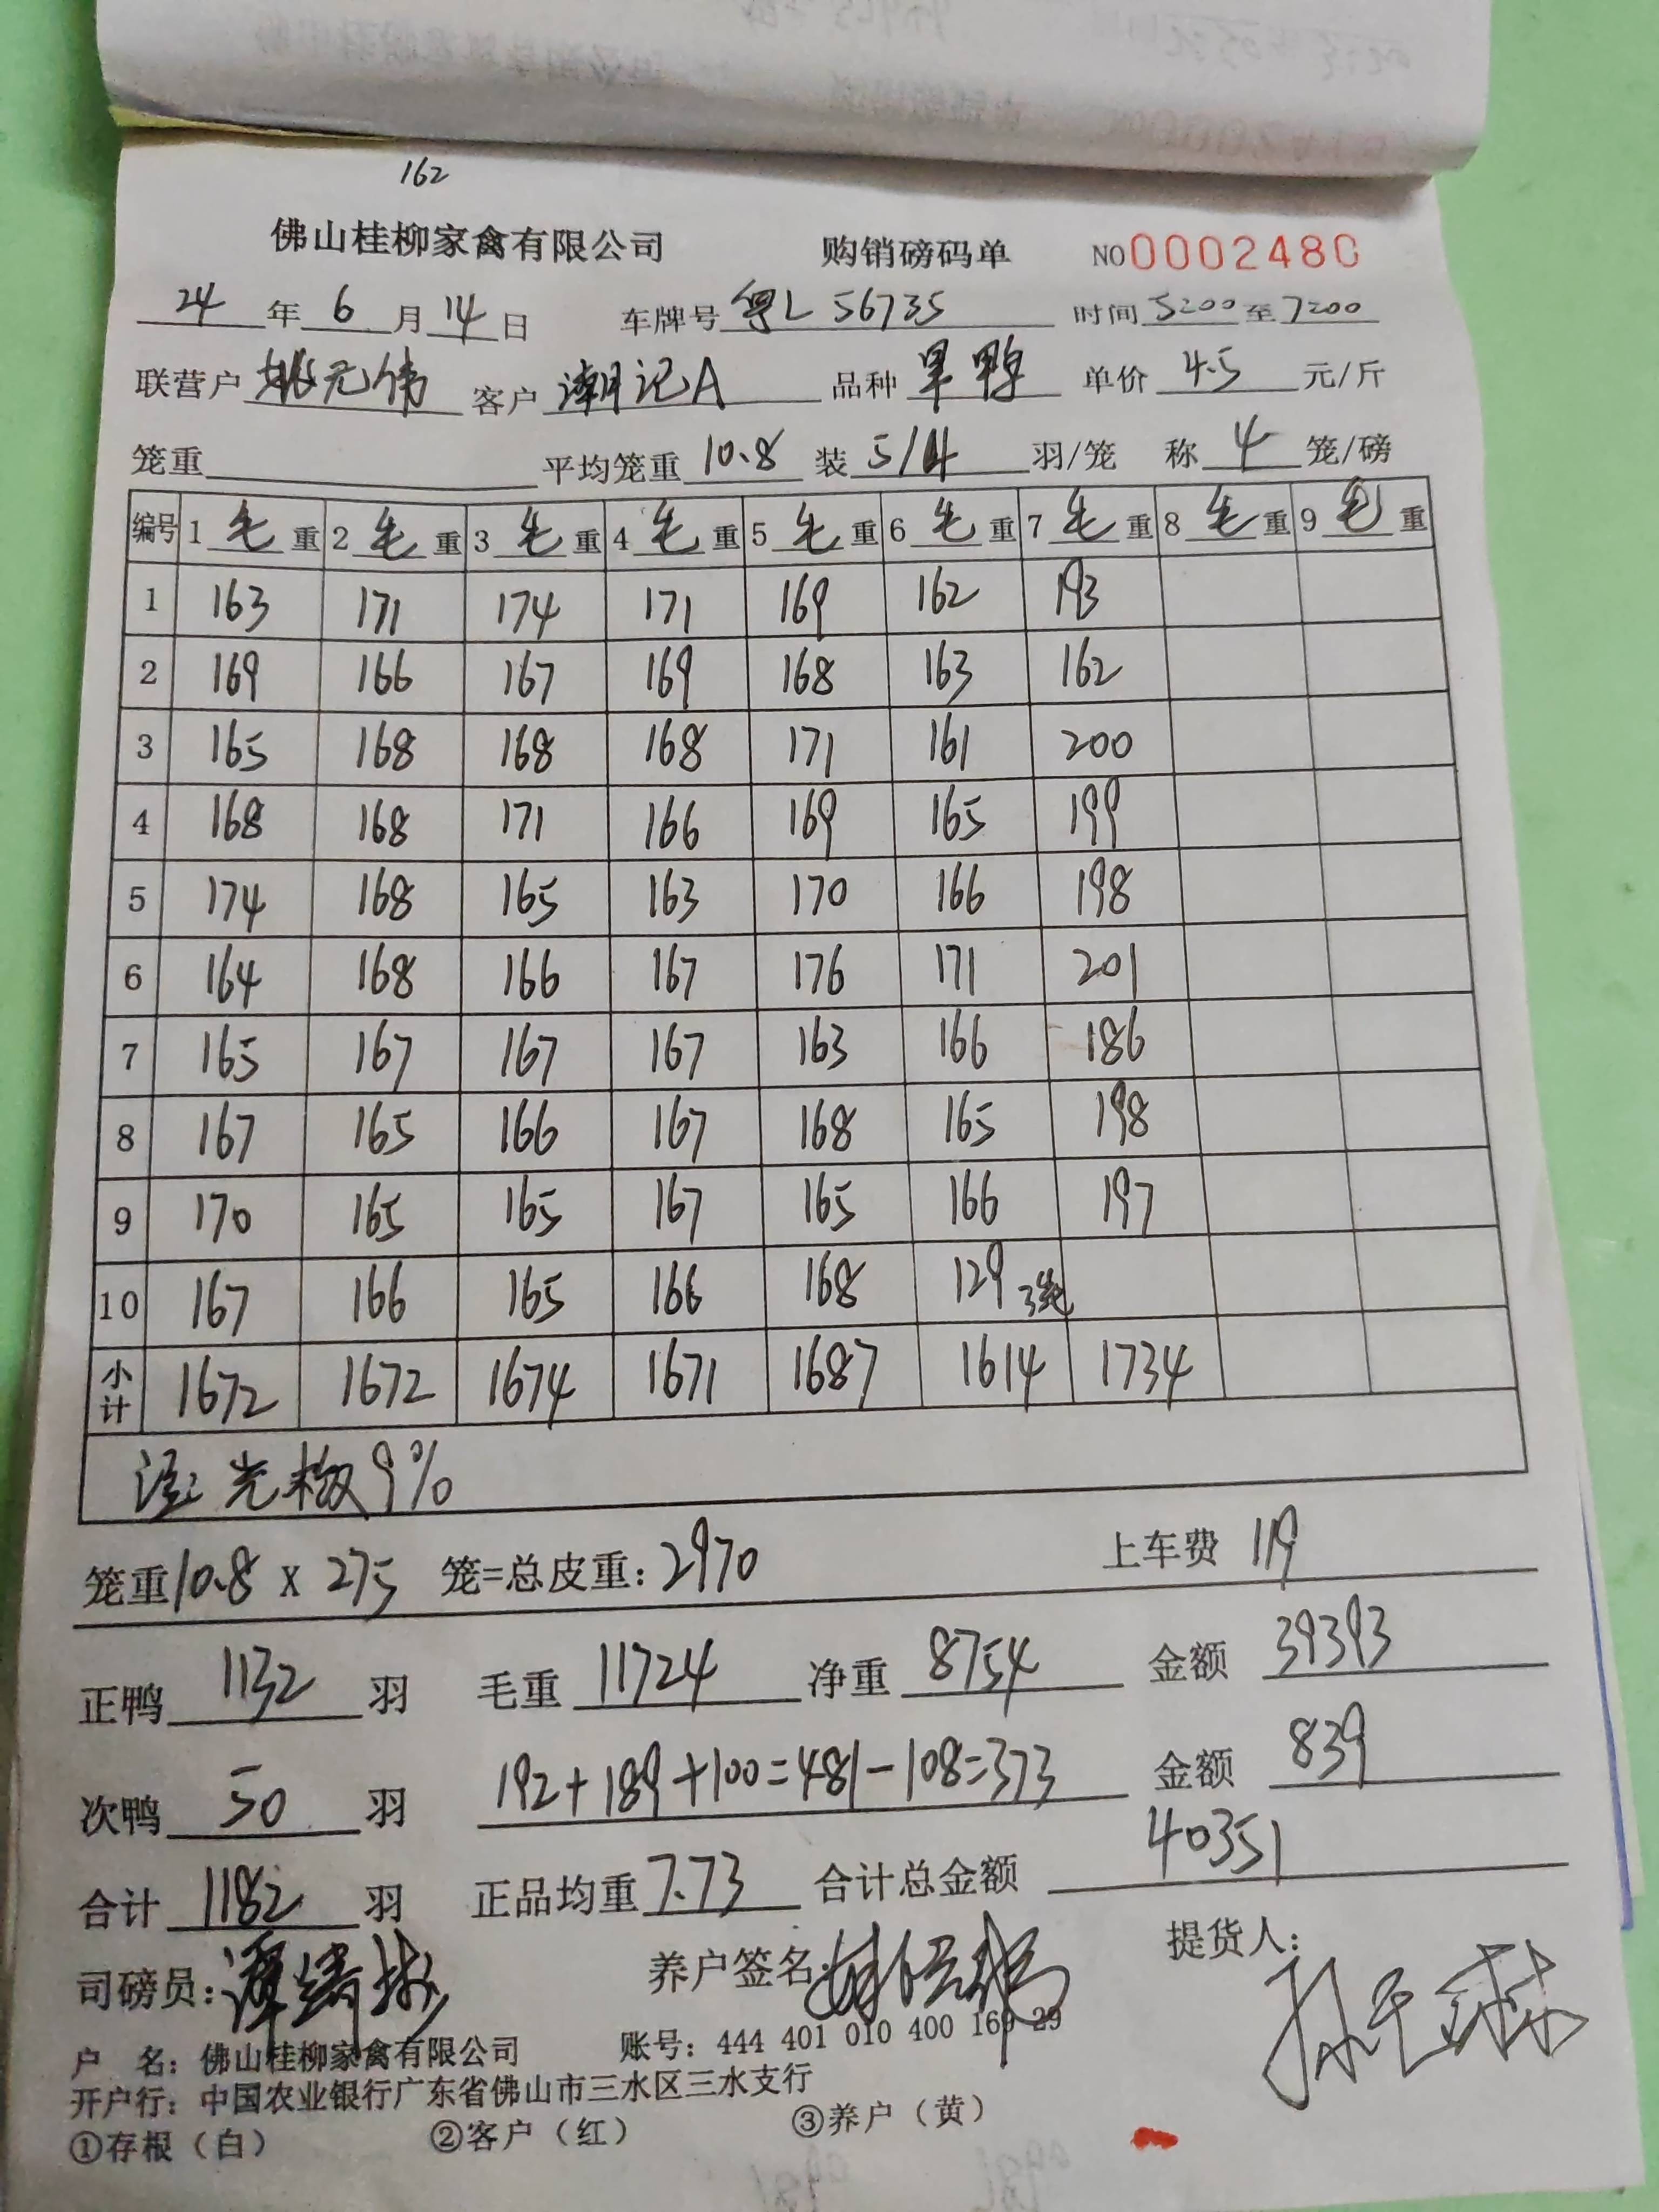 162
佛山桂柳家禽有限公司 购销磅码单 NO 0002480
24 年 6 月 14 日 车牌号 粤L 56735 时间 5:00 至 7:00
联营户 姚元伟 客户 潮记A 品种 旱鸭 单价 4.5 元/斤
笼重 平均笼重 10.8 装 5/4 羽/笼 称 4 笼/磅
编号 1 毛 重 2 毛 重 3 毛 重 4 毛 重 5 毛 重 6 毛 重 7 毛 重 8 毛 重 9 毛 重
1 163 171 174 171 169 162 193
2 169 166 167 169 168 163 162
3 165 168 168 168 171 161 200
4 168 168 171 166 169 165 199
5 174 168 165 163 170 166 198
6 164 168 166 167 176 171 201
7 165 167 167 167 163 166 186
8 167 165 166 167 168 165 198
9 170 165 165 167 165 166 197
10 167 166 165 166 168 129 3笼
小计 1672 1672 1674 1671 1687 1614 1734
注: 光板9%
笼重 10.8 X 275 笼=总皮重: 2970 上车费 119
正鸭 1132 羽 毛重 11724 净重 8754 金额 39393
次鸭 50 羽 192+189+100=481-108=373 金额 839
合计 1182 羽 正品均重 7.73 合计总金额 40351
司磅员: 养户签名: 提货人:
户 名: 佛山桂柳家禽有限公司 账号: 444 401 010 400 169 29
开户行: 中国农业银行广东省佛山市三水区三水支行
①存根（白） ②客户（红） ③养户（黄）